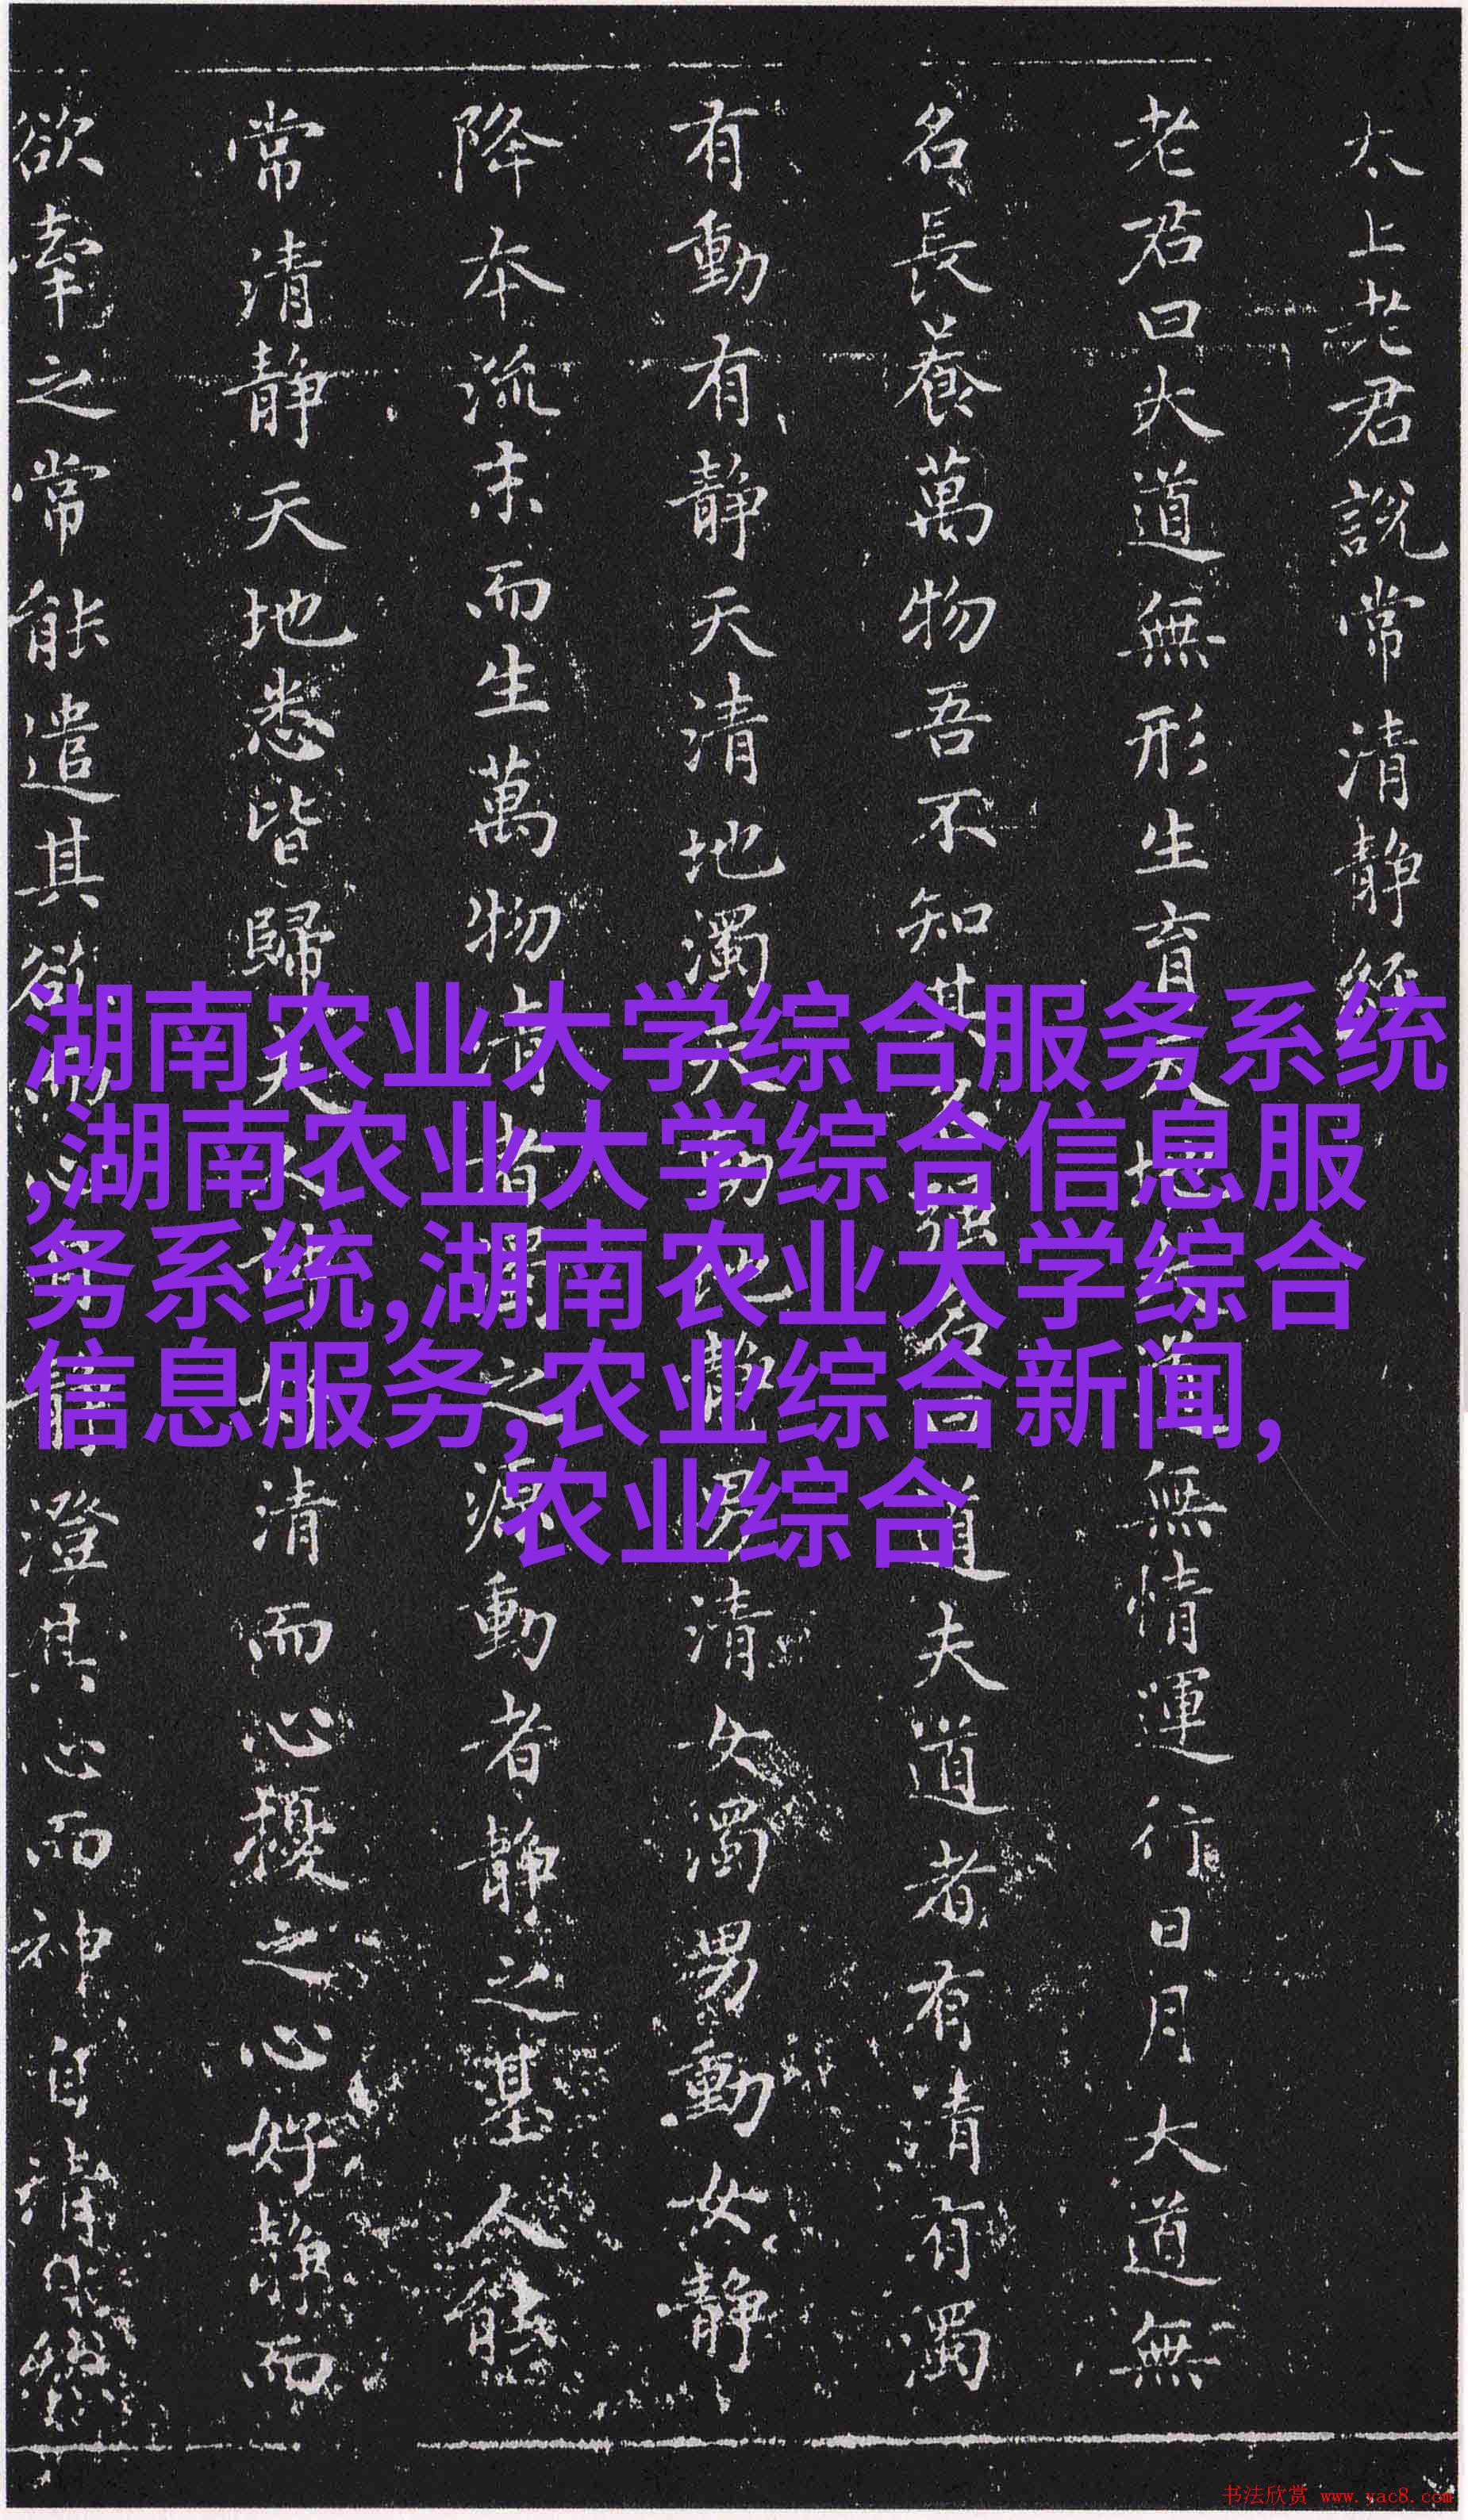 太上老君說常清静經
老君曰大道無形生育天地大道無情運行日月大道無
名長養萬物吾不知其名强名曰道夫道者有清有濁
有動有静天清地濁天動地静男清女濁男動女静
降本流末而生萬物清者濁之源動者静之基人能
常清静天地悉皆歸夫人神好清而心擾之心好静而
欲牽之常能遣其欲而心自静澄其心而神自清
湖南农业大学综合服务系统
,湖南农业大学综合信息服
务系统,湖南农业大学综合
信息服务,农业综合新闻,
农业综合
书法欣赏 www.yac8.com